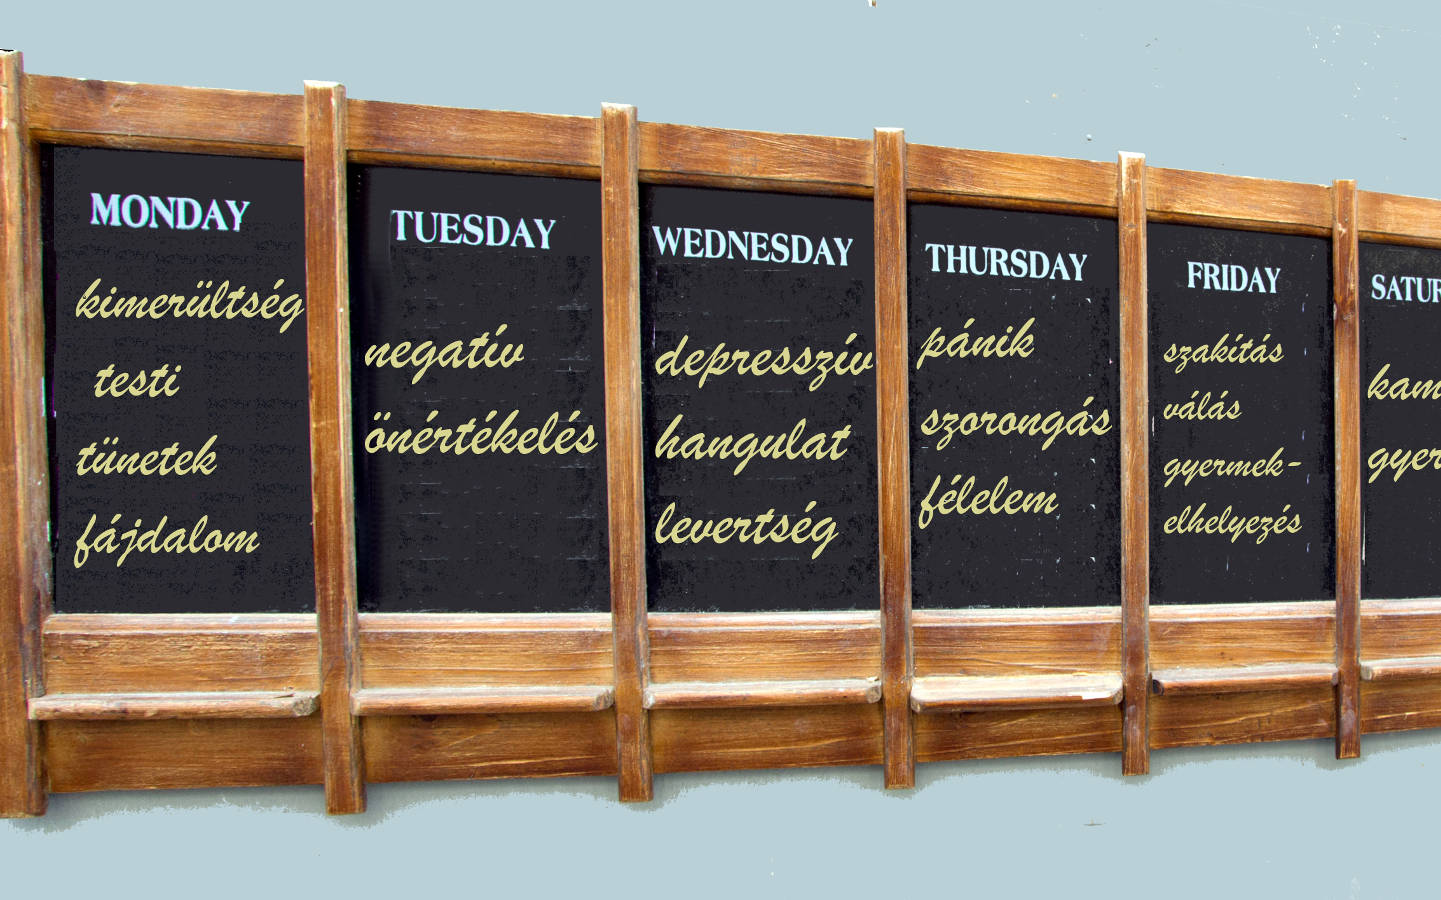 MONDAY
kimerültség
testi
tünetek
fájdalom
TUESDAY
negatív
önértékelés
WEDNESDAY
depresszív
hangulat
levertség
THURSDAY
pánik
szorongás
félelem
FRIDAY
szakítás
válás
gyermek-
elhelyezés
SATUR
kam
gyer